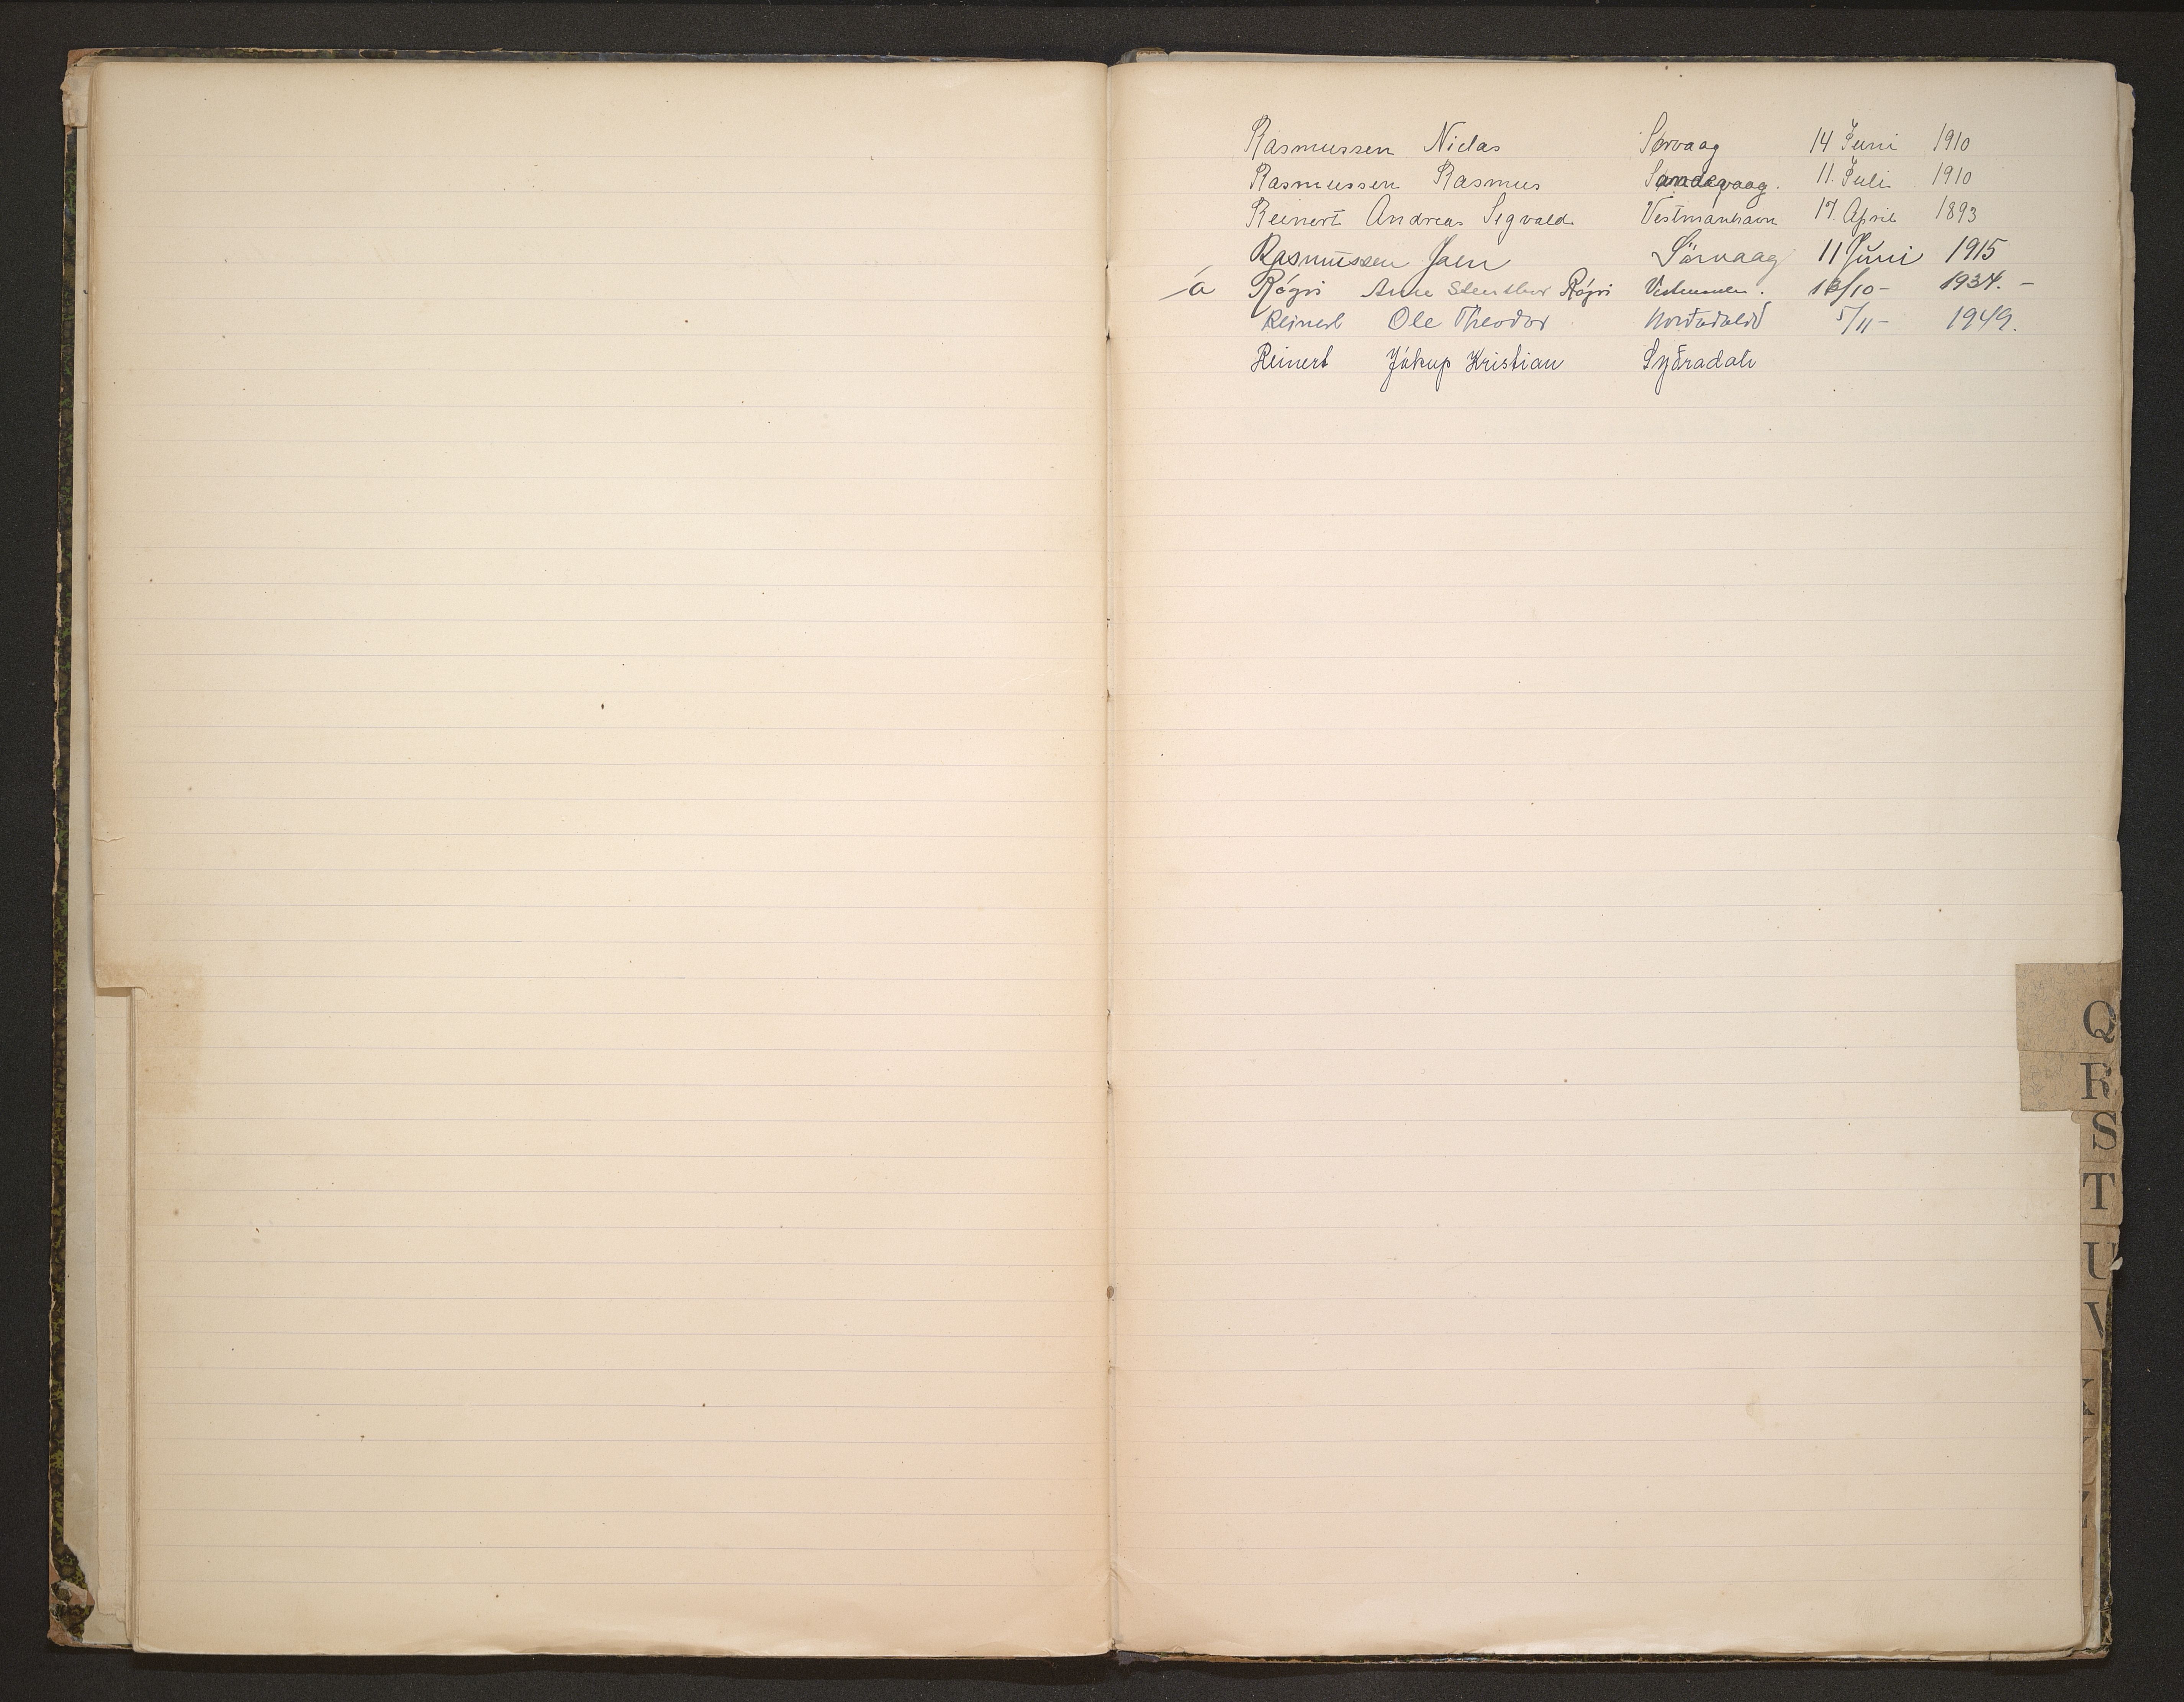 Rasmussen Niclas Sørvaag 14 Juni 1910
Rasmussen Rasmus Sandevaag. 11. Juli 1910
Reinert Andreas Sigvald Vestmanhavn 17. April 1893
Rasmussen Joen Sörvaag 11 Juni 1915
á Rógvi Anne Rógvi 1934. -
Reinert Ole Theodor 5/11 - 1949.
Reinert Jákup Kristian Syðradali
Q
R
S
T
U
V